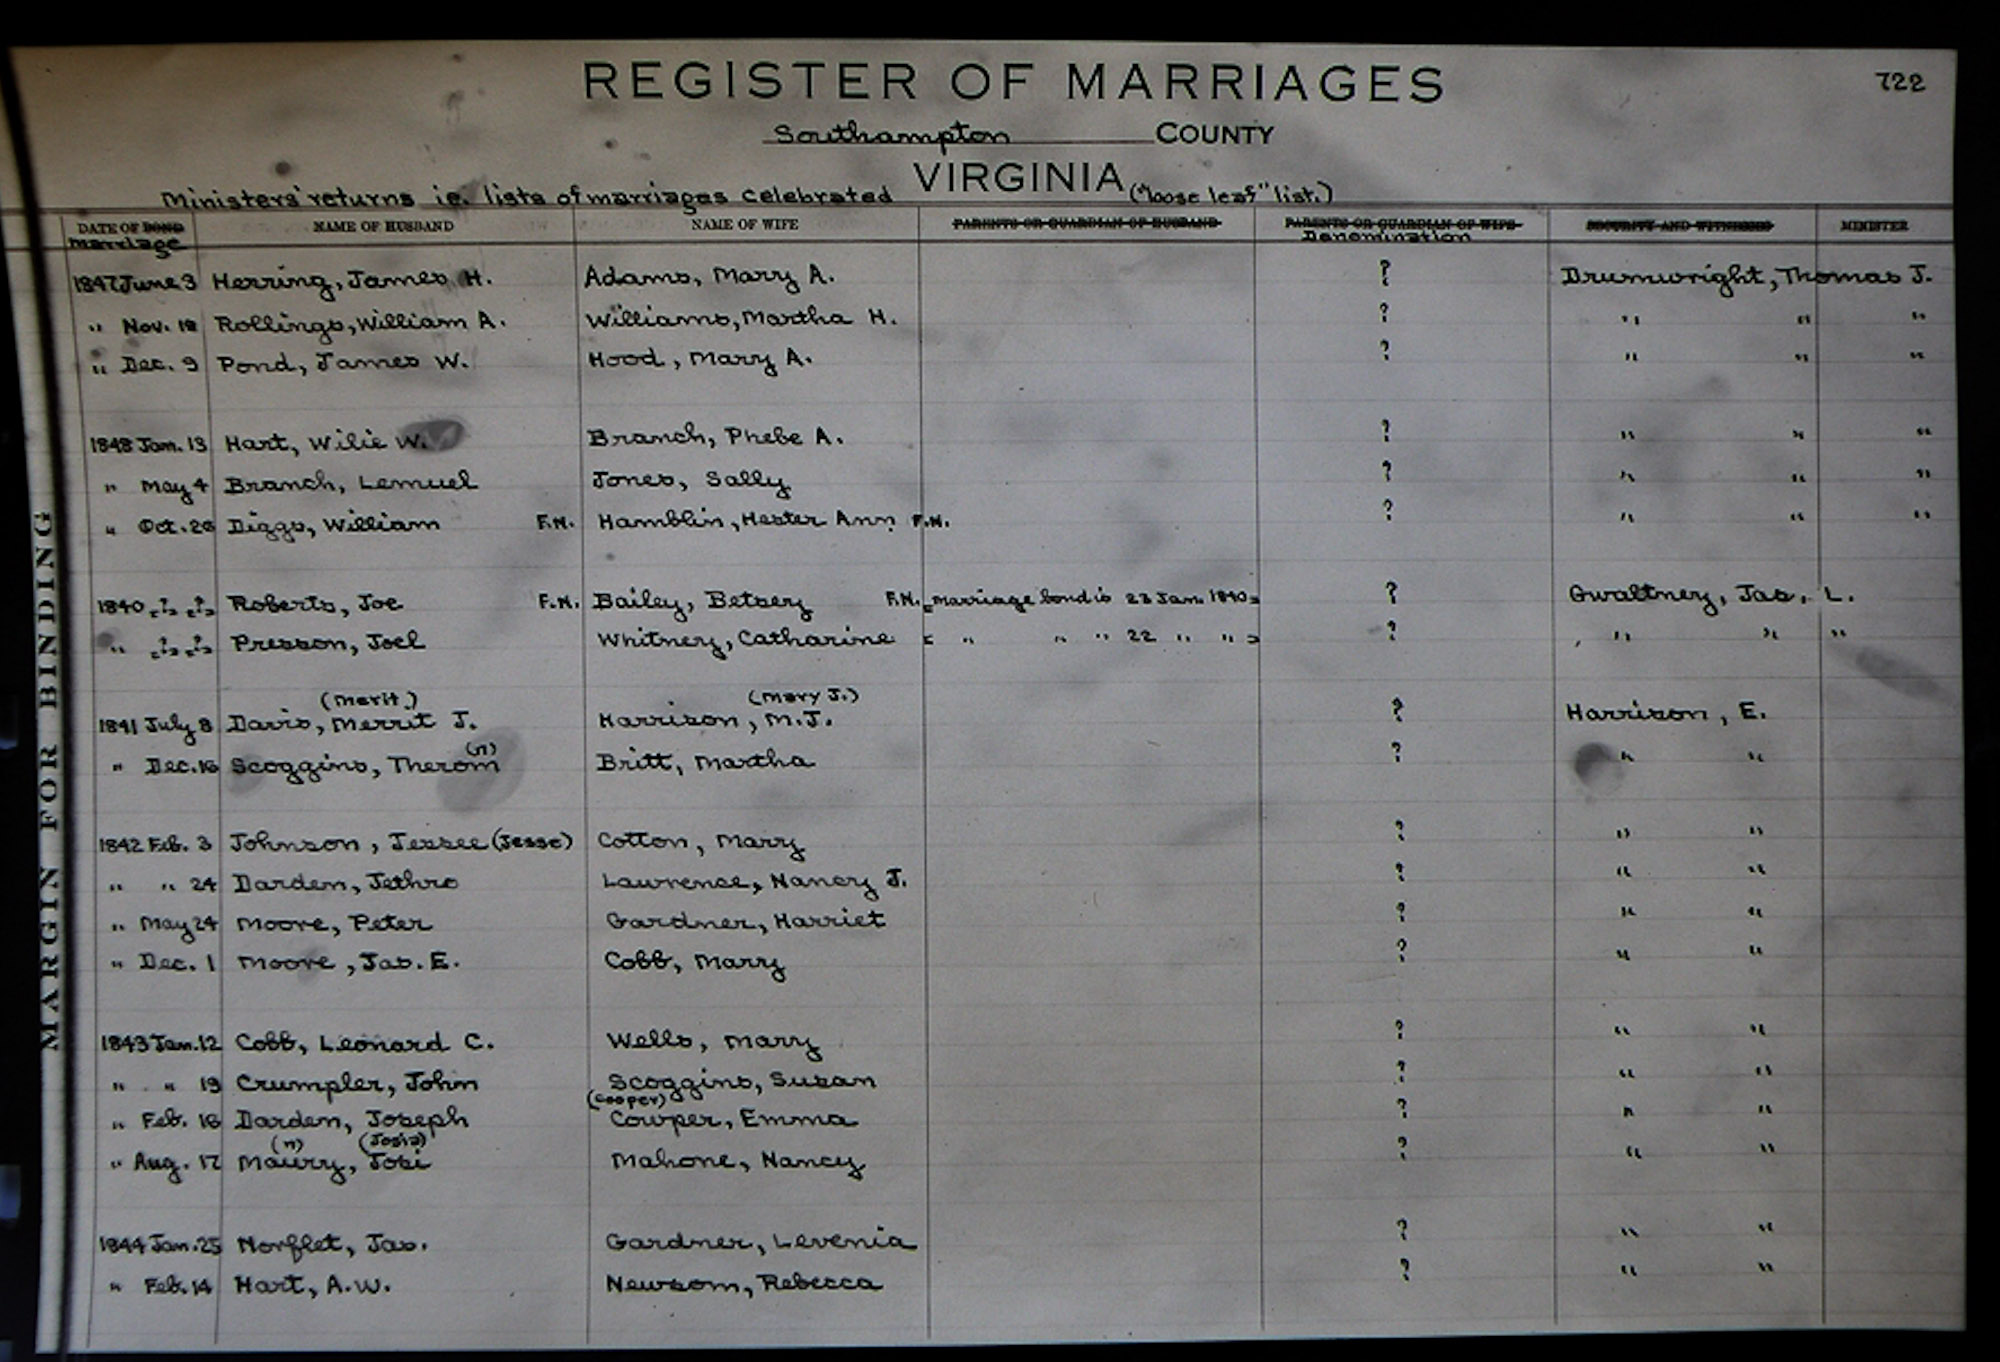 REGISTER OF MARRIAGES 722
Southampton COUNTY
VIRGINIA
Ministers' returns ie. lists of marriages celebrated ("loose leaf" list.)
DATE OF BOND NAME OF HUSBAND NAME OF WIFE PARENTS OR GUARDIAN OF HUSBAND PARENTS OR GUARDIAN OF WIFE SECURITY AND WITNESSES MINISTER
marriage Denomination
1847 June 3 Herring, James H. Adams, Mary A. ? Drumwright, Thomas J.
" Nov. 18 Rollings, William A. Williams, Martha H. ? " " "
" Dec. 9 Pond, James W. Hood, Mary A. ? " " "
1848 Jan. 13 Hart, Wilie W. Branch, Phebe A. ? " " "
" May 4 Branch, Lemuel Jones, Sally ? " " "
" Oct. 26 Diggs, William F.N. Hamblin, Hester Ann F.N. ? " " "
1840 [?] [?] Roberts, Joe F.N. Bailey, Betsey F.N. [marriage bond is 23 Jan. 1840] ? Gwaltney, Jas. L.
" [?] [?] Presson, Joel Whitney, Catharine [ " " " 22 " " ] ? " " "
(Merit) (Mary J.)
1841 July 8 Davis, Merrit J. Harrison, M.J. ? Harrison, E.
(n)
" Dec. 16 Scoggins, Therom Britt, Martha ? " "
1842 Feb. 3 Johnson, Jessee (Jesse) Cotton, Mary ? " "
" " 24 Darden, Jethro Lawrence, Nancy J. ? " "
" May 24 Moore, Peter Gardner, Harriet ? " "
" Dec. 1 Moore, Jas. E. Cobb, Mary ? " "
1843 Jan. 12 Cobb, Leonard C. Wells, Mary ? " "
" " 19 Crumpler, John Scoggins, Susan ? " "
(Cooper)
" Feb. 16 Darden, Joseph Cowper, Emma ? " "
(n) (Josia)
" Aug. 17 Maury, Josi Mahone, Nancy ? " "
1844 Jan. 25 Norflet, Jas. Gardner, Levenia ? " "
" Feb. 14 Hart, A.W. Newsom, Rebecca ? " "
MARGIN FOR BINDING